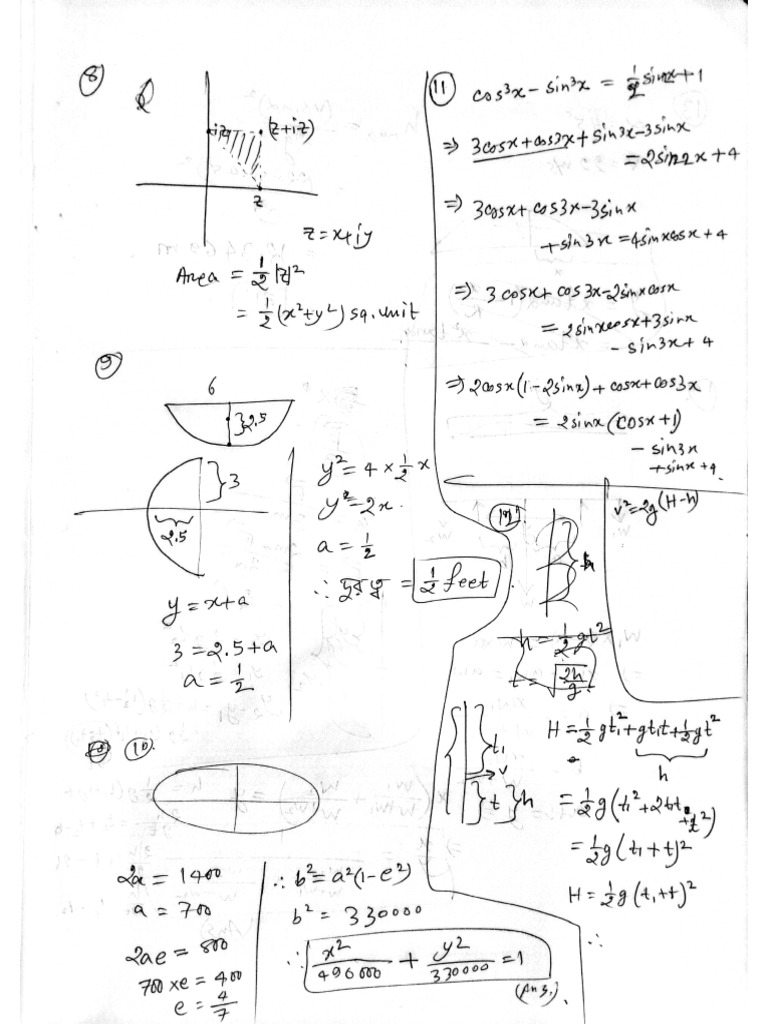 8
iz
(z+iz)
z
z = x+iy
Area = 1/2 |z|²
= 1/2 (x²+y²) sq. unit
9
6
2.5
3
2.5
y = x+a
3 = 2.5+a
a = 1/2
y² = 4 × 1/2 x
y² = 2x
a = 1/2
∴ দূরত্ব = 1/2 feet
10.
2a = 1400
a = 700
2ae = 800
700 xe = 400
e = 4/7
∴ b² = a²(1-e²)
b² = 330000
∴ x²/490000 + y²/330000 = 1
(Ans.)
11
cos³x - sin³x = 1/2 sin2x+1
⇒ 3cosx + cos3x + sin3x - 3sinx
= 2sin2x + 4
⇒ 3cosx + cos3x - 3sinx
+ sin3x = 4sinxcosx + 4
⇒ 3cosx + cos3x - 2sinxcosx
= 2sinxcosx + 3sinx
- sin3x + 4
⇒ 2cosx(1-2sinx) + cosx + cos3x
= 2sinx(cosx+1)
- sin3x
+ sinx + 4
v² = 2g(H-h)
h
h = 1/2 gt²
t = √2h/g
t₁
v
t
h
H = 1/2 gt₁² + gt₁t + 1/2 gt²
h
= 1/2 g(t₁² + 2tt₁ + t²)
= 1/2 g(t₁+t)²
H = 1/2 g(t₁+t)²
∴